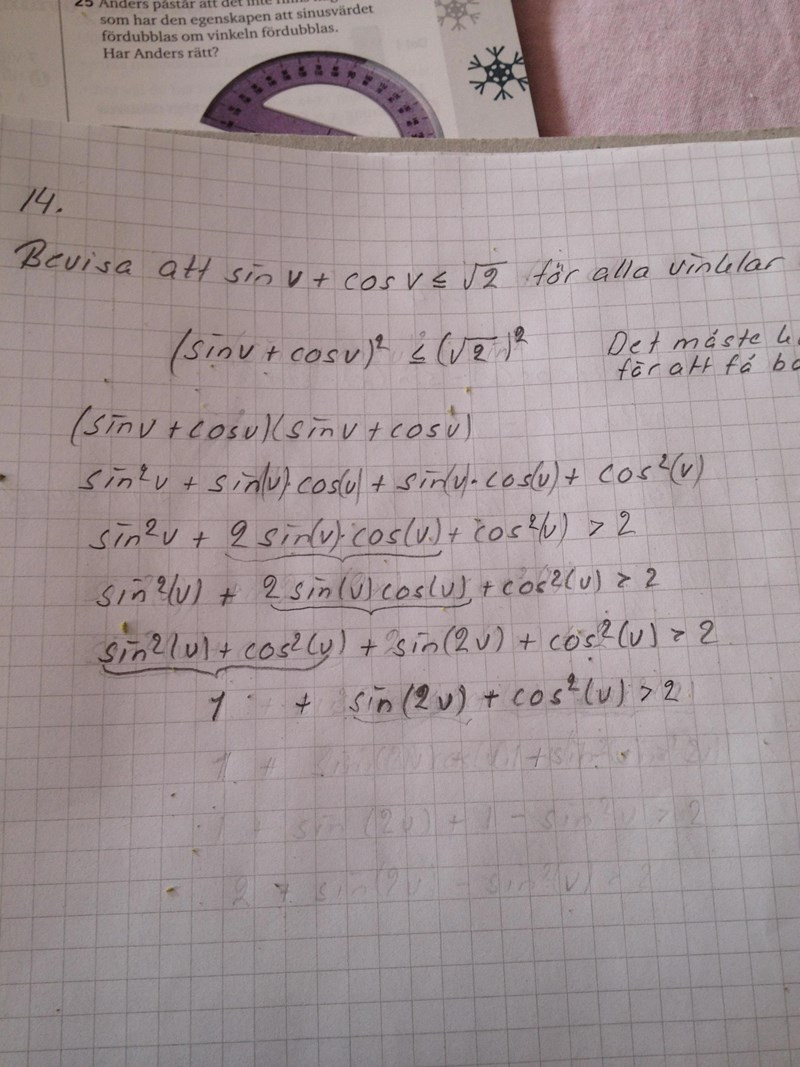 25 Anders påstår att det inte
som har den egenskapen att sinusvärdet
fördubblas om vinkeln fördubblas.
Har Anders rätt?
14.
Bevisa att sin v + cos v ≤ √2 för alla vinklar
(sinv + cosv)² ≤ (√2)² Det måste
för att få
(sinv + cosv)(sinv + cosv)
sin²v + sin(v)·cos(v) + sin(v)·cos(v) + cos²(v)
sin²v + 2 sin(v)·cos(v) + cos²(v) > 2
sin²(v) + 2 sin(v) cos(v) + cos²(v) > 2
sin²(v) + cos²(v) + sin(2v) + cos²(v) > 2
1 + sin(2v) + cos²(v) > 2
1 + sin(2v) + 1 - sin²v > 2
2 + sin(2v) - sin²(v) > 2